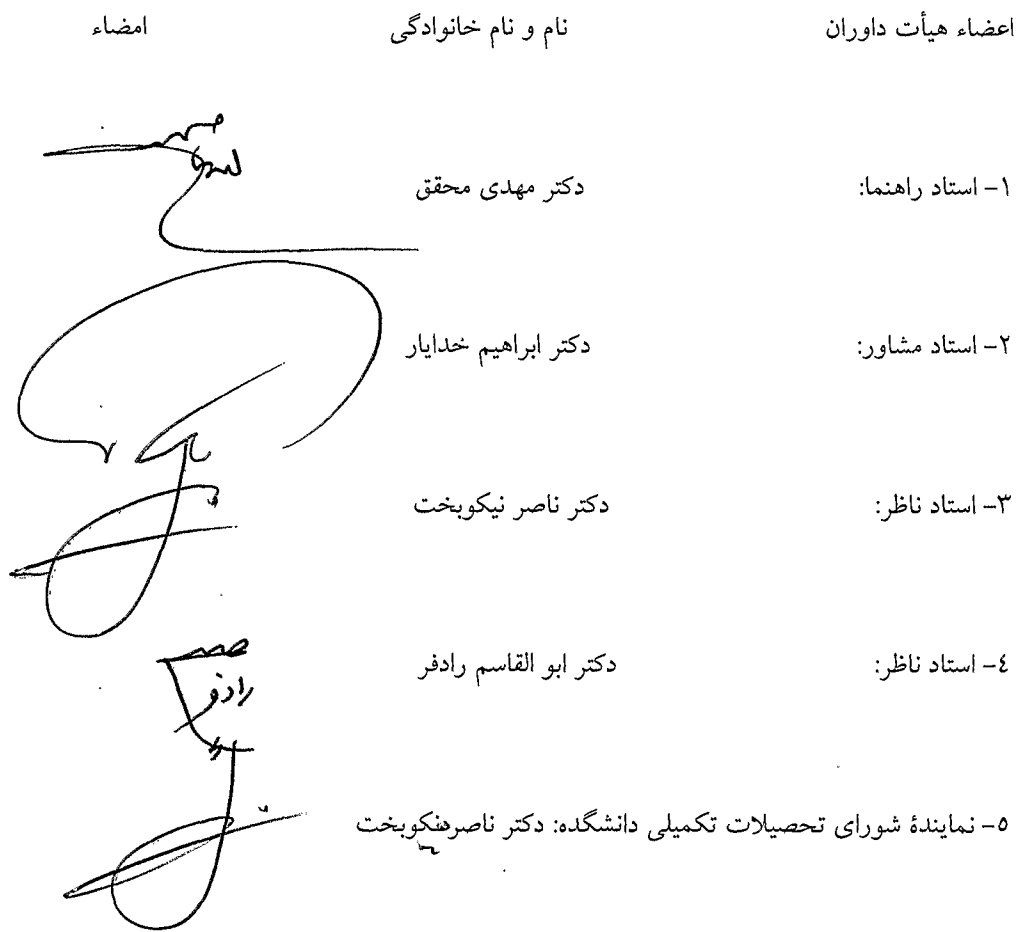 اعضاء هیأت داوران نام و نام خانوادگی امضاء
۱- استاد راهنما: دکتر مهدی محقق
۲- استاد مشاور: دکتر ابراهیم خدایار
۳- استاد ناظر: دکتر ناصر نیکوبخت
٤- استاد ناظر: دکتر ابو القاسم رادفر
رادفر
٥- نمایندۀ شورای تحصیلات تکمیلی دانشگده: دکتر ناصر